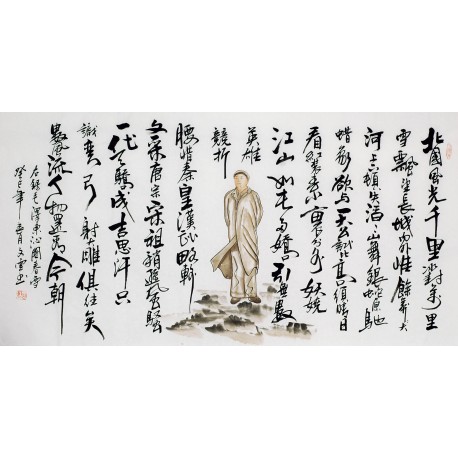 北國風光千里冰封萬里
雪飄望長城內外惟餘莽々大
河上下頓失滔滔山舞銀蛇原馳
蠟象欲與天公試比高須晴日
看紅裝素裹分外妖嬈
江山如此多嬌引無數
英雄
競折
腰惜秦皇漢武略輸
文采唐宗宋祖稍遜風騷
一代天驕成吉思汗只
識彎弓射大雕俱往矣
數風流人物還看今朝
右錄毛澤東沁園春雪
癸巳年月文雲書